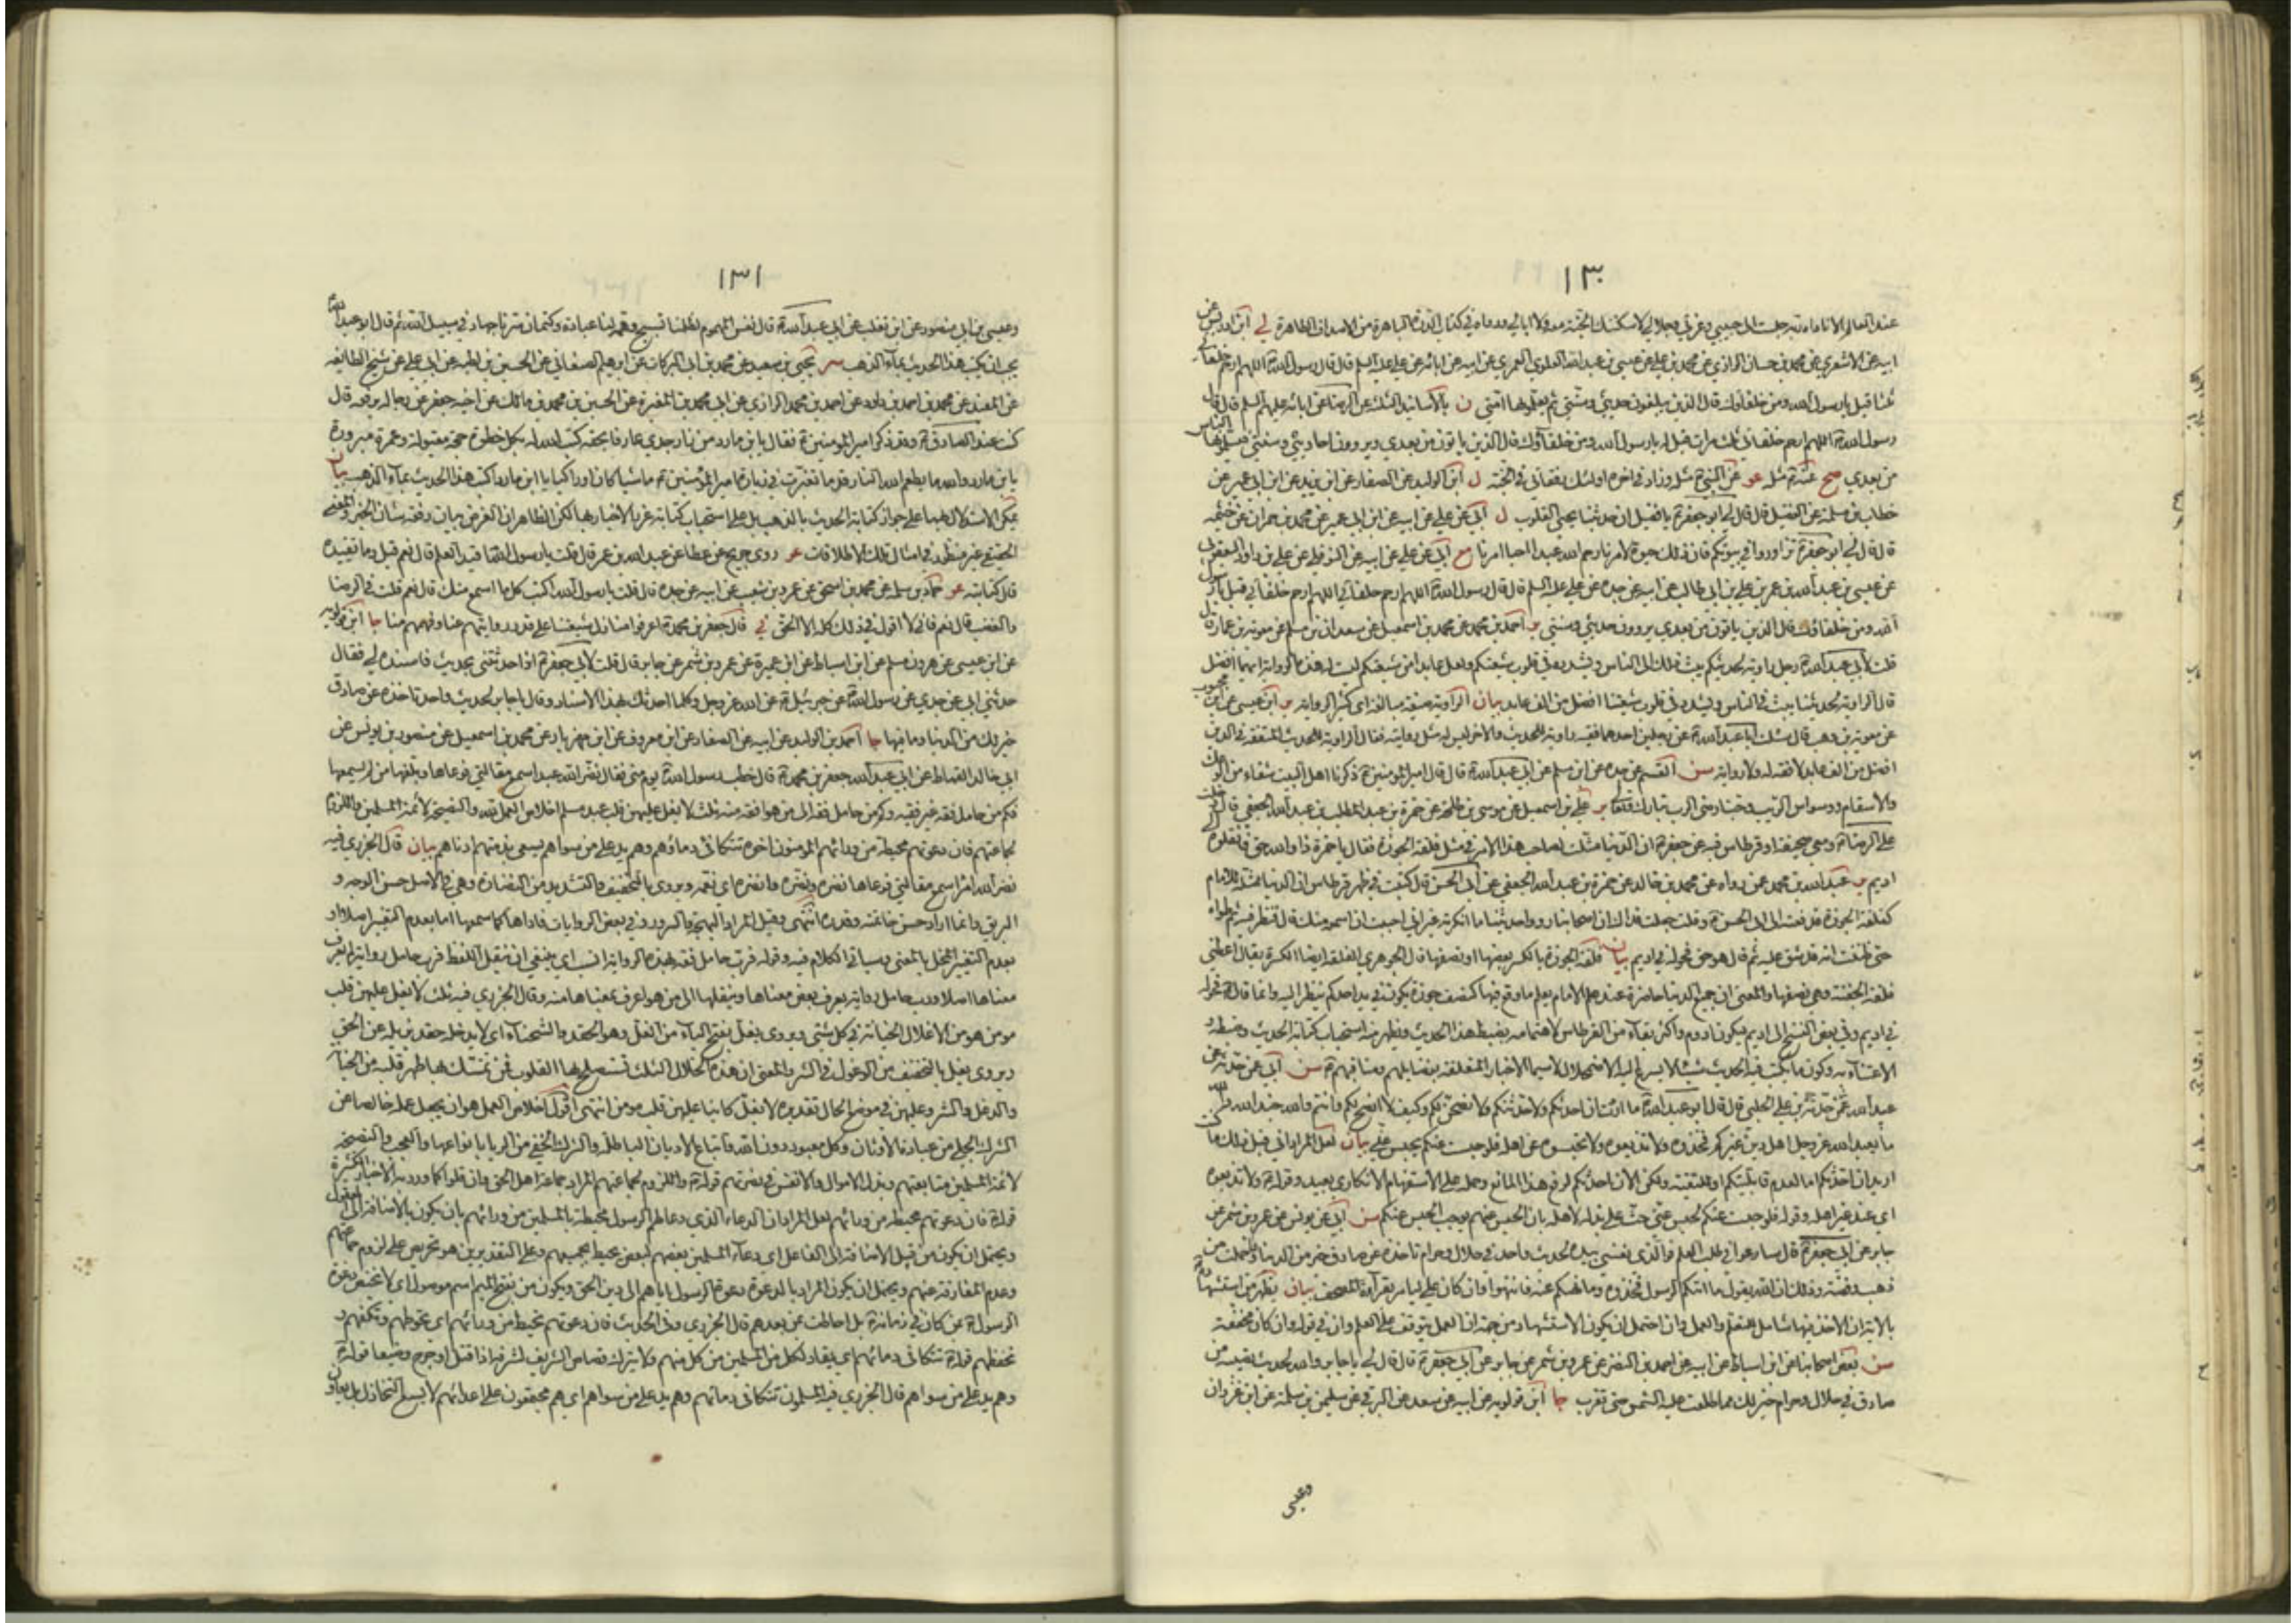 ١٣٠
عند العالم الا ناداه ربه جلست الى حبيبي وعزتي وجلالي لاسكننك الجنة معه ولا ابالي ودعاه في كتاب الدرة الباهرة من الاصداف الطاهرة لي ابن ادريس عن
ابيه عن الاشعري عن محمد بن حسان الرازي عن محمد بن علي عن عيسى بن عبد الله العلوي العمري عن ابيه عن ابائه عن علي عليه السلم قال قال رسول الله ص اللهم ارحم خلفائي
ثلثا قيل يا رسول الله ومن خلفاؤك قال الذين يبلغون حديثي وسنتي ثم يعلمونها امتي ن بالاسانيد الثلث عن الرضا عن ابائه عليهم السلم قال قال
رسول الله ص اللهم ارحم خلفائي ثلث مرات قيل له يا رسول الله ومن خلفاؤك قال الذين ياتون من بعدي ويروون احاديثي وسنتي فيسلمونها الناس
من بعدي صح عنه ع مثله غو عن النبي ص مثله وزاد في اخره اولئك رفقائي في الجنة ل ابن الوليد عن الصفار عن ابن يزيد عن ابن ابي عمير عن
خطاب بن مسلمة عن الفضيل قال قال لي ابو جعفر ع يا فضيل ان حديثنا يحيي القلوب ل ابي عن علي عن ابيه عن ابن ابي عمير عن محمد بن حمران عن خيثمه
قال قال لي ابو جعفر ع تزاوروا في بيوتكم فان ذلك حيوة لامرنا رحم الله عبدا احيا امرنا مع ابي عن علي عن ابيه عن النوفلي عن علي بن داود اليعقوبي
عن عيسى بن عبد الله بن عمر بن علي بن ابي طالب عن ابيه عن جده عن علي عليه السلم قال قال رسول الله ص اللهم ارحم خلفائي اللهم ارحم خلفائي قيل يا رسول
الله ومن خلفاؤك قال الذين ياتون من بعدي يروون حديثي وسنتي ير احمد بن محمد عن محمد بن اسمعيل عن سعدان بن مسلم عن معوية بن عمار قال
قلت لابي عبد الله ع رجل راوية لحديثكم يبث ذلك الى الناس ويشدده في قلوب شيعتكم ولعل عابدا من شيعتكم ليست له هذه الرواية ايهما افضل
قال الراوية لحديثنا يبث في الناس ويشدده في قلوب شيعتنا افضل من الف عابد بيان الراوية صيغة مبالغة اي كثير الرواية ير ابن عيسى عن ابن محبوب
عن معوية بن وهب قال سئلت ابا عبد الله ع عن رجلين احدهما فقيه راوية للحديث والاخر ليس له مثل روايته فقال الراوية للحديث المتفقه في الدين
افضل من الف عابد لا فقه له ولا رواية سن القسم عن جده عن ابن مسلم عن ابي عبد الله ع قال قال امير المومنين ع ذكرنا اهل البيت شفاء من الوعك
والاسقام ووسواس الريب وحبنا رضى الرب تبارك وتعالى ير علي بن اسمعيل عن موسى بن طلحة عن حمزة بن عبد المطلب بن عبد الله الجعفي قال دخلت
على الرضا ع ومعي صحيفة او قرطاس فيه عن جعفر ع ان الدنيا مثلت لصاحب هذا الامر في مثل فلقة الجوزة فقال يا حمزة ذا والله حق فانقلوه الى
اديم ير عبد الله بن محمد عمن رواه عن محمد بن خالد عن حمزة بن عبد الله الجعفي عن ابي الحسن ع قال كتبت في ظهر قرطاس ان الدنيا ممثلة للامام
كفلقة الجوزة فدفعته الى ابي الحسن ع وقلت جعلت فداك ان اصحابنا رووا حديثا ما انكرته غير اني احببت ان اسمعه منك قال فنظر فيه ثم طواه
حتى ظننت انه قد شق عليه ثم قال هو حق فحوله في اديم بيان فلقة الجوزة بالكسر بعضها او نصفها قال الجوهري الفلقة ايضا الكسرة يقال اعطني
فلقة الجفنة وهي نصفها والمعنى ان جميع الدنيا حاضرة عند علم الامام يعلم ما وقع فيها كنصف جوزة يكون في يد احدكم ينظر اليه وانما قال ع فحوله
في اديم وفي بعض النسخ الى اديم ليكون ادوم واكثر بقاء من القرطاس لاهتمامه بضبط هذا الحديث ويظهر منه استحباب كتابة الحديث وضبطه و
الاعتناء به وكون ما يكتب فيه الحديث شيئا لا يسرع اليه الاضمحلال لاسيما الاخبار المتعلقة بفضايلهم ومناقبهم ع سن ابي عمن حدثه عن
عبيد الله بن علي الحلبي قال قال ابو عبد الله ع ما اردت ان احدثكم ولاحدثنكم ولانصحن لكم وكيف لا انصح لكم وانتم والله جند الله والله
ما يعبد الله عز وجل اهل دين غيركم فخذوه ولا تذيعوه ولا تحبسوه عن اهله فلو حبست عنكم يحبس عني بيان لعل المراد اني قبل ذلك ما كنت
اريد ان احدثكم اما لعدم قابليتكم او للتقية ولكن الان احدثكم لرفع هذا المانع وحمله على الاستفهام الانكاري بعيد وقوله ع ولا تذيعوه
اي عند غير اهله وقوله فلو حبست عنكم لحبس عني حث على بذله لاهله بان الحبس عنهم يوجب الحبس عنكم سن ابي عن يونس عن عمرو بن شمر عن
جابر عن ابي جعفر ع قال سارعوا في طلب العلم فوالذي نفسي بيده لحديث واحد في حلال وحرام تاخذه عن صادق خير من الدنيا وما حملت من
ذهب وفضة وذلك ان الله يقول ما اتيكم الرسول فخذوه وما نهيكم عنه فانتهوا وان كان علي ليامر بقراءة المصحف بيان يظهر من استشهاده
بالاية ان الاخذ فيها شامل للتعلم والعمل وان احتمل ان يكون الاستشهاد من جهة ان العمل يتوقف على العلم وان في قوله وان كان مخففة
سن بعض اصحابنا عن ابن اسباط عن ابيه عن احمد بن النضر عن عمرو بن شمر عن جابر عن ابي جعفر ع قال قال لي يا جابر والله لحديث تصيبه من
صادق في حلال وحرام خير لك مما طلعت عليه الشمس حتى تغرب جا ابن قولويه عن ابيه عن سعد عن البرقي عن سليمن بن سلمة عن ابن غزوان
وعيسى
١٣١
وعيسى بن ابي منصور عن ابن تغلب عن ابي عبد الله ع قال نفس المهموم لظلمنا تسبيح وهمه لنا عبادة وكتمان سرنا جهاد في سبيل الله ثم قال ابو عبد الله ع
يجب ان يكتب هذا الحديث بماء الذهب سر يحيى بن سعيد عن محمد بن ابي البركات عن ابرهيم الصنعاني عن الحسين بن رطبه عن ابي علي عن شيخ الطائفه
عن المفيد عن محمد بن احمد بن داود عن احمد بن محمد الرازي عن ابي محمد بن المغيرة عن الحسين بن محمد بن مالك عن اخيه جعفر عن رجاله يرفعه قال
كنت عند الصادق ع وقد ذكر امير المومنين ع فقال يا بن مارد من زار جدي عارفا بحقه كتب الله له بكل خطوة حجة مقبولة وعمرة مبرورة
يا بن مارد والله ما يطعم الله النار قدما تغبرت في زيارة امير المؤمنين ع ماشيا كان او راكبا يا ابن مارد اكتب هذا الحديث بماء الذهب بيان
يمكن الاستدلال بهما على جواز كتابة الحديث بالذهب بل على استحباب كتابة غرر الاخبار بها لكن الظاهر ان الغرض بيان رفعة شان الخبر والمعنى
الحقيقي غير منظور في امثال تلك الاطلاقات غو روى جريح عن عطا عن عبد الله بن عمر قال قلت يا رسول الله اقيد العلم قال نعم قيل وما تقييده
قال كتابته غو حماد بن سلمه عن محمد بن اسحق عن عمرو بن شعيب عن ابيه عن جده قال قلت يا رسول الله اكتب كل ما اسمع منك قال نعم قلت في الرضا
والغضب قال نعم فاني لا اقول في ذلك كله الا الحق ني قال جعفر بن محمد ع اعرفوا منازل شيعتنا على قدر روايتهم عنا وفهمهم منا جا ابن قولويه
عن ابن عيسى عن هرون بن مسلم عن ابن اسباط عن ابن عميرة عن عمرو بن شمر عن جابر قال قلت لابي جعفر ع اذا حدثتني بحديث فاسنده لي فقال
حدثني ابي عن جدي عن رسول الله ص عن جبرئيل ع عن الله عز وجل وكلما احدثك بهذا الاسناد وقال يا جابر لحديث واحد تاخذه عن صادق
خير لك من الدنيا وما فيها جا احمد بن الوليد عن ابيه عن الصفار عن ابن معروف عن ابن مهزيار عن محمد بن اسمعيل عن منصور بن يونس عن
ابي خالد القماط عن ابي عبد الله جعفر بن محمد ع قال خطب رسول الله ص يوم منى فقال نضر الله عبدا سمع مقالتي فوعاها وبلغها من لم يسمعها
فكم من حامل فقه غير فقيه وكم من حامل فقه الى من هو افقه منه ثلث لا يغل عليهن قلب عبد مسلم اخلاص العمل لله والنصيحة لائمة المسلمين واللزوم
لجماعتهم فان دعوتهم محيطة من ورائهم المومنون اخوة تتكافى دماؤهم وهم يد على من سواهم يسعى بذمتهم ادناهم بيان قال الجزري فيه
نضر الله امرأ سمع مقالتي فوعاها نضره ونضره وانضره اي نعمه ويروى بالتخفيف والتشديد من النضارة وهي في الاصل حسن الوجه و
البريق وانما اراد حسن خلقه وقدره انتهى وقيل المراد البهجة والسرور وفي بعض الروايات فاداها كما سمعها اما بعدم التغيير اصلا او
بعدم التغيير المخل بالمعنى وسياتي الكلام فيه وقوله فرب حامل فقه بهذه الرواية انسب اي ينبغي ان ينقل اللفظ فرب حامل رواية لم يعرف
معناها اصلا ورب حامل رواية يعرف بعض معناها وينقلها الى من هو اعرف بمعناها منه وقال الجزري فيه ثلث لا يغل عليهن قلب
مومن هو من الاغلال الخيانة في كل شئ ويروى يغل بفتح الياء من الغل وهو الحقد والشحناء اي لا يدخله حقد يزيله عن الحق
ويروى يغل بالتخفيف من الوغول في الشر والمعنى ان هذه الخلال الثلث تستصلح بها القلوب فمن تمسك بها طهر قلبه من الخيانة
والدغل والشر وعليهن في موضع الحال تقديره لا يغل كاينا عليهن قلب مومن انتهى اقول اخلاص العمل هو ان يجعل عمله خالصا عن
الشرك الجلي من عبادة الاوثان وكل معبود دون الله واتباع الاديان الباطلة والشرك الخفي من الريا بانواعها والعجب والنصيحة
لائمة المسلمين متابعتهم وبذل الاموال والانفس في نصرتهم قوله ع واللزوم لجماعتهم المراد جماعة اهل الحق وان قلوا كما ورد به الاخبار الكثيرة
قوله ع فان دعوتهم محيطة من ورائهم لعل المراد ان الدعاء الذي دعا لهم الرسول محيطة بالمسلمين من ورائهم بان يكون بالاضافة الى المفعول
ويحتمل ان يكون من قبيل الاضافة الى الفاعل اي دعاء المسلمين بعضهم لبعض يحيط بجميعهم وعلى التقديرين هو تحريص على لزوم جماعتهم
وعدم المفارقة عنهم ويحتمل ان يكون المراد بالدعوة دعوة الرسول اياهم الى دين الحق ويكون من بفتح الميم اسم موصول اي لا تختص دعوة
الرسول ص بمن كان في زمانه ع بل احاطت بمن بعدهم قال الجزري وفي الحديث فان دعوتهم تحيط من ورائهم اي تحوطهم وتكنفهم و
تحفظهم قوله ع تتكافى دمائهم اي يقاد لكل من المسلمين من كل منهم ولا يترك قصاص الشريف لشرفه اذا قتل او جرح وضيعا قوله ع
وهم يد على من سواهم قال الجزري فيه المسلمون تتكافى دمائهم وهم يد على من سواهم اي هم مجتمعون على اعدائهم لا يسع التخاذل بل يعاون